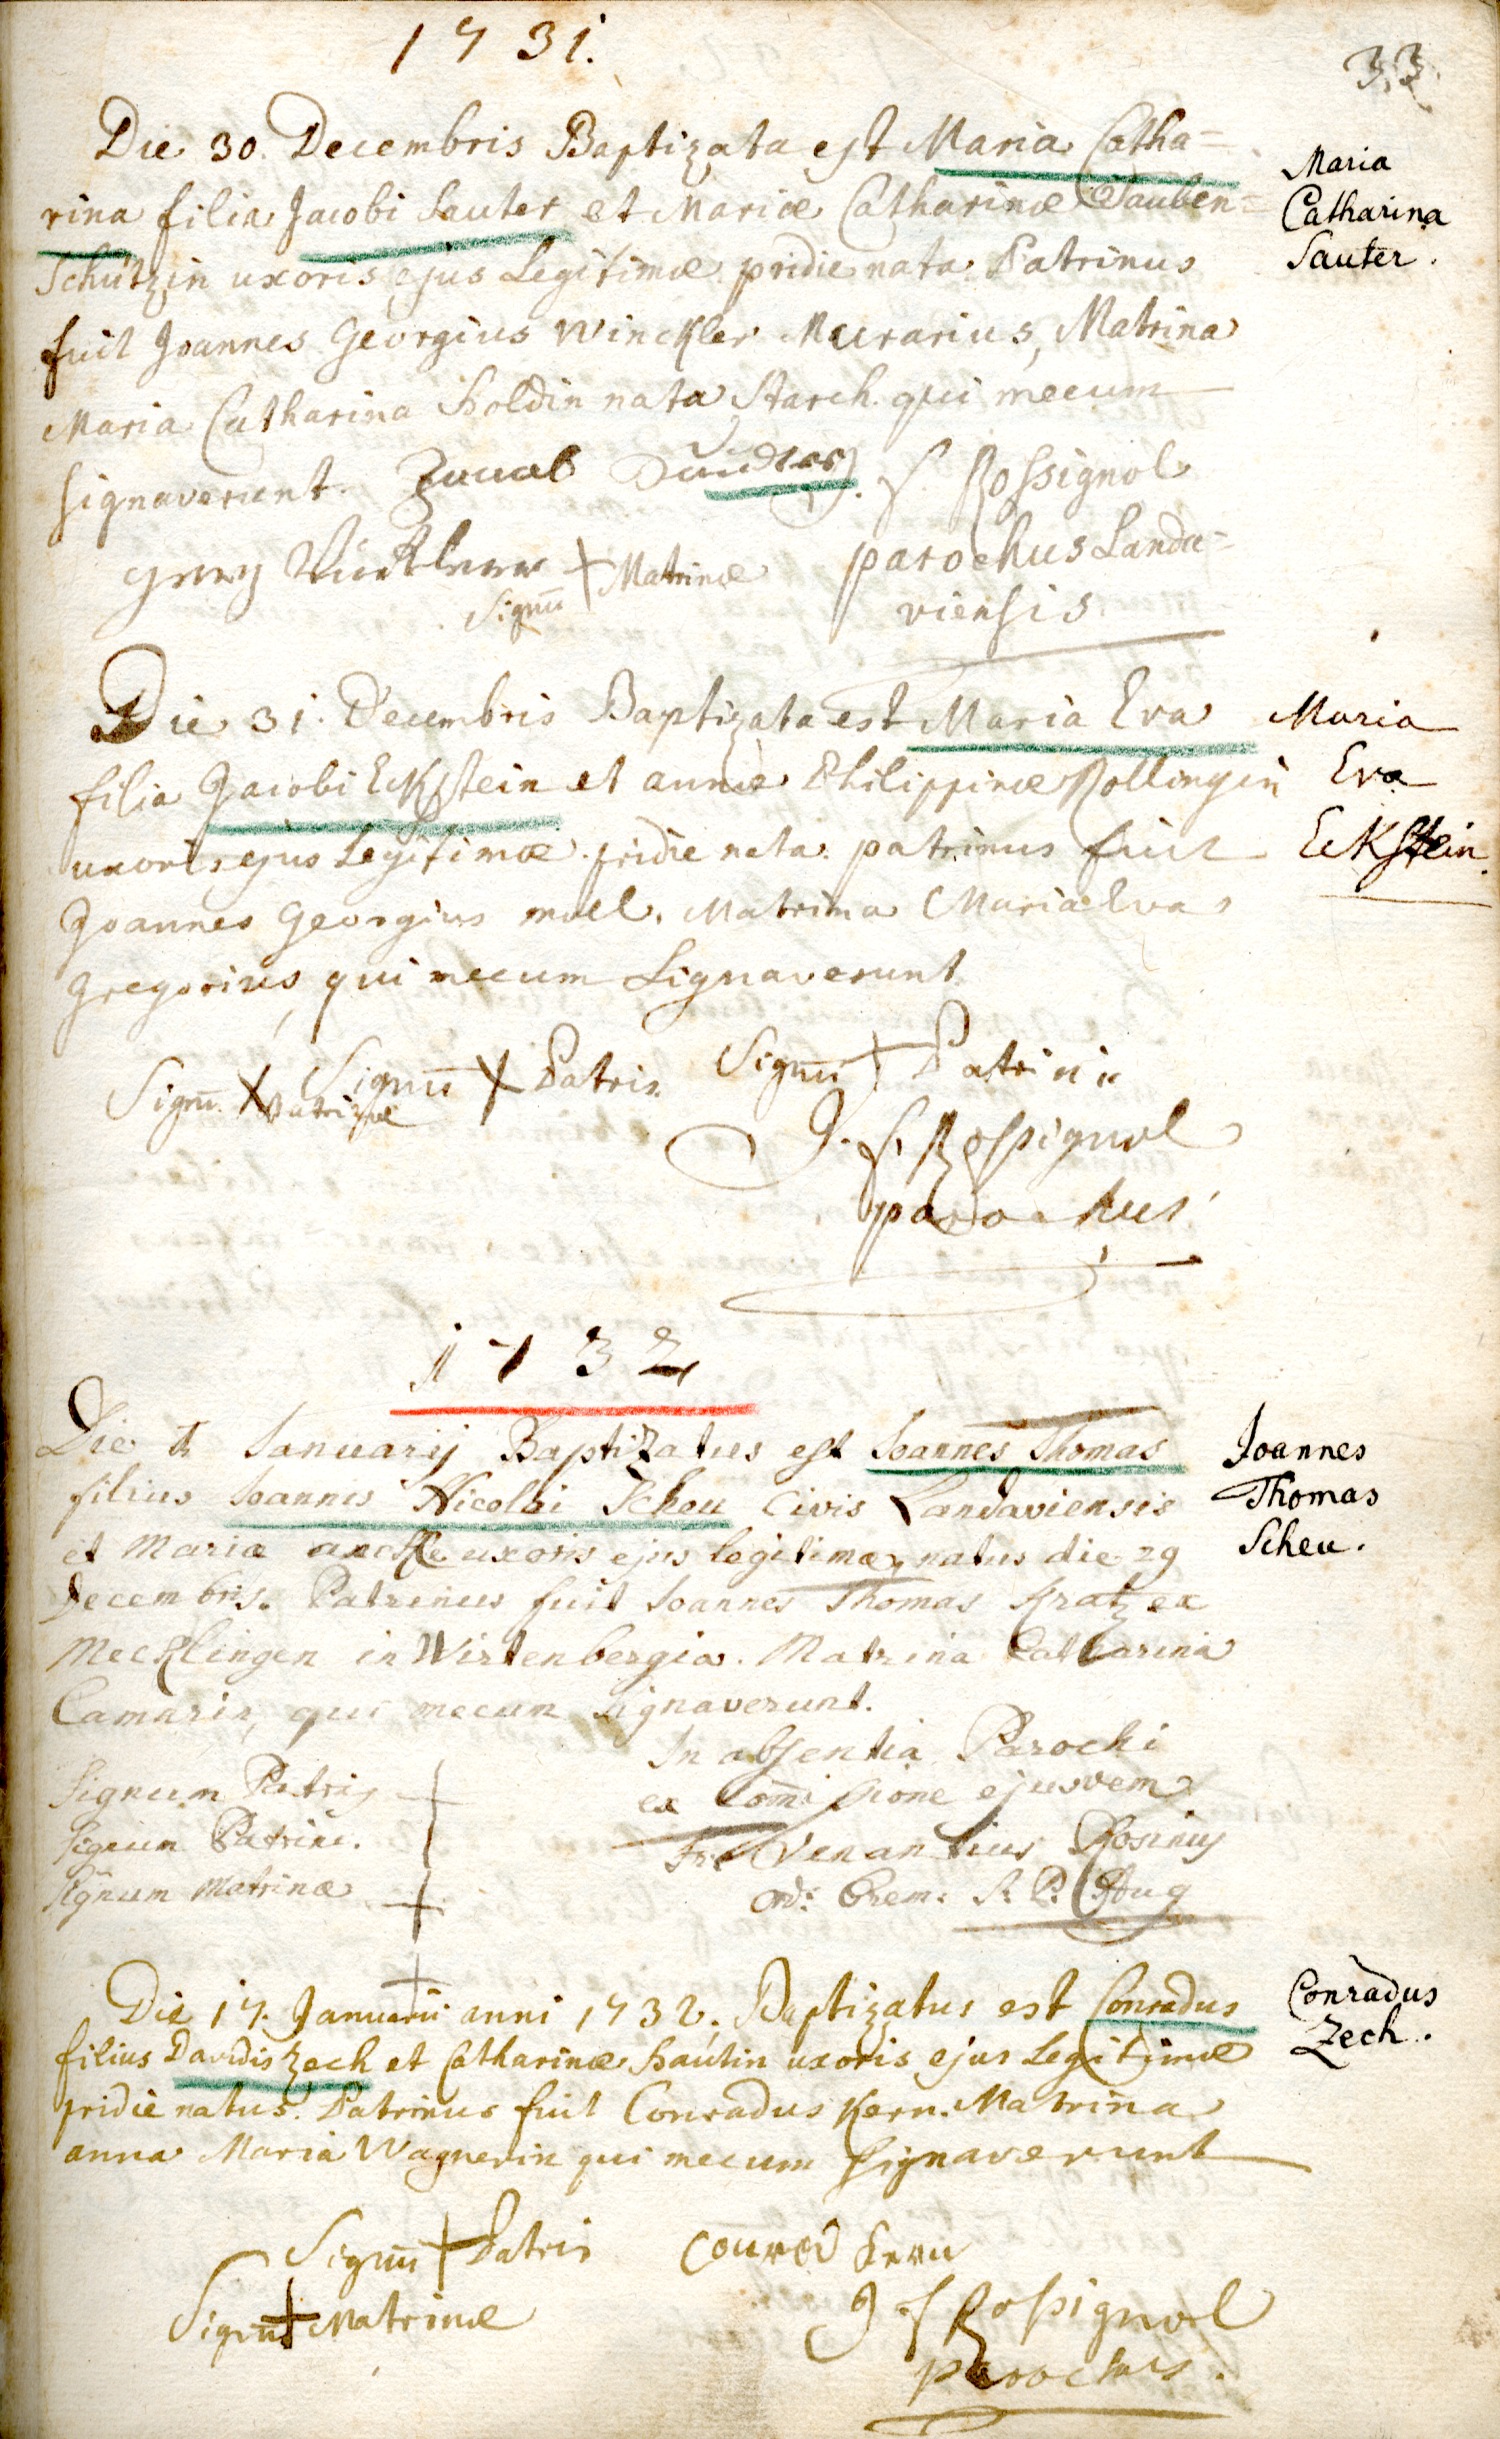 1731.
33.
Die 30. Decembris Baptizata est Maria Catha=
rina filia Jacobi Sauter et Mariæ Catharinæ Tauben=
Schützin uxoris ejus Legitimæ pridie nata. Patrinus
fuit Joannes Georgius Winckler Murarius, Matrina
Maria Catharina Holdin nata Starch. qui mecum
signaverunt. Jacob J. f. Rossignol
parochus Landa=
viensis.
Signū + Matrinæ
Maria
Catharina
Sauter.
Die 31. Decembris Baptizata est Maria Eva
filia Jacobi Eckstein et annæ Philippinæ Rollingin
uxoris ejus Legitimæ. pridie nata. patrinus fuit
Joannes Georgius moll. Matrina Maria Eva
Gregorius, qui mecum Signaverunt
Signū + Matrinæ Signū + Patris. Signū + Patrini
J. f. Rossignol
parochus
Maria
Eva
Eckstein.
1732
Die Januarij Baptizatus est Joannes Thomas
filius Joannis Nicolai Schou Civis Landaviensis
et Mariæ uxoris ejus legitimæ, natus die 29
Decembris. Patrinus fuit Joannes Thomas Kratz ex
Mecklingen in Wirtenbergia. Matrina Catharina
qui mecum signaverunt.
Signum Patris +
Signum Patrini.
Signum Matrinæ +
In absentia Parochi
ex Com̄issione ejusdem
Fr. Venantius Rosinus
Ord: Erem: S. P. Aug
Joannes
Thomas
Scheu.
Die 17. Januarii anni 1732. Baptizatus est Conradus
filius Davidis Zech et Catharinæ Hautin uxoris ejus Legitimæ
pridie natus. Patrinus fuit Conradus Kern. Matrina
anna Maria Wagnerin qui mecum signaverunt
Signū + Patris Conrad Kern
Signū + Matrinæ
J. f. Rossignol
parochus.
Conradus
Zech.